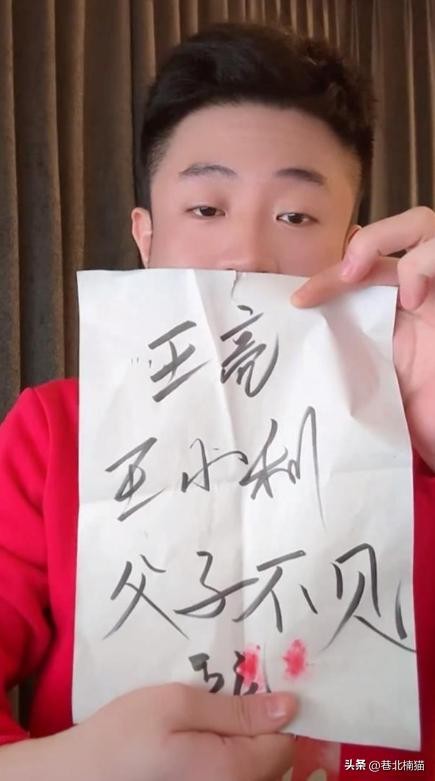 王亮
王小利
父子不见
头条 @巷北楠猫